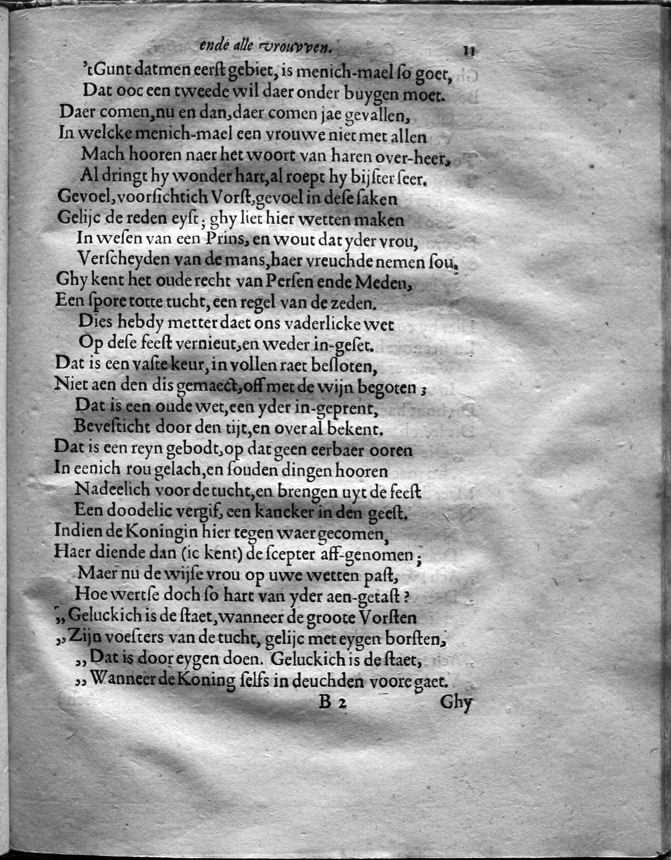 ende alle vrouvven. 11
'tGunt datmen eerſt gebiet, is menich-mael ſo goet,
Dat ooc een tweede wil daer onder buygen moet.
Daer comen, nu en dan, daer comen jae gevallen,
In welcke menich-mael een vrouwe niet met allen
Mach hooren naer het woort van haren over-heer,
Al dringt hy wonder hart, al roept hy bijſter ſeer.
Gevoel, voorſichtich Vorſt, gevoel in deſe ſaken
Gelijc de reden eyſt; ghy liet hier wetten maken
In weſen van een Prins, en wout dat yder vrou,
Verſcheyden van de mans, haer vreuchde nemen ſou,
Ghy kent het oude recht van Perſen ende Meden,
Een ſpore totte tucht, een regel van de zeden.
Dies hebdy metter daet ons vaderlicke wet
Op deſe feeſt vernieut, en weder in-geſet.
Dat is een vaſte keur, in vollen raet beſloten,
Niet aen den dis gemaect, off met de wijn begoten;
Dat is een oude wet, een yder in-geprent,
Beveſticht door den tijt, en over al bekent.
Dat is een reyn gebodt, op dat geen eerbaer ooren
In eenich rou gelach, en ſouden dingen hooren
Nadeelich voor de tucht, en brengen uyt de feeſt
Een doodelic vergif, een kancker in den geeſt.
Indien de Koningin hier tegen waer gecomen,
Haer diende dan (ic kent) de ſcepter aff-genomen;
Maer nu de wijſe vrou op uwe wetten paſt,
Hoe wertſe doch ſo hart van yder aen-getaſt?
„Geluckich is de ſtaet, wanneer de groote Vorſten
„Zijn voeſters van de tucht, gelijc met eygen borſten,
„Dat is door eygen doen. Geluckich is de ſtaet,
„Wanneer de Koning ſelfs in deuchden voore gaet.
B 2 Ghy